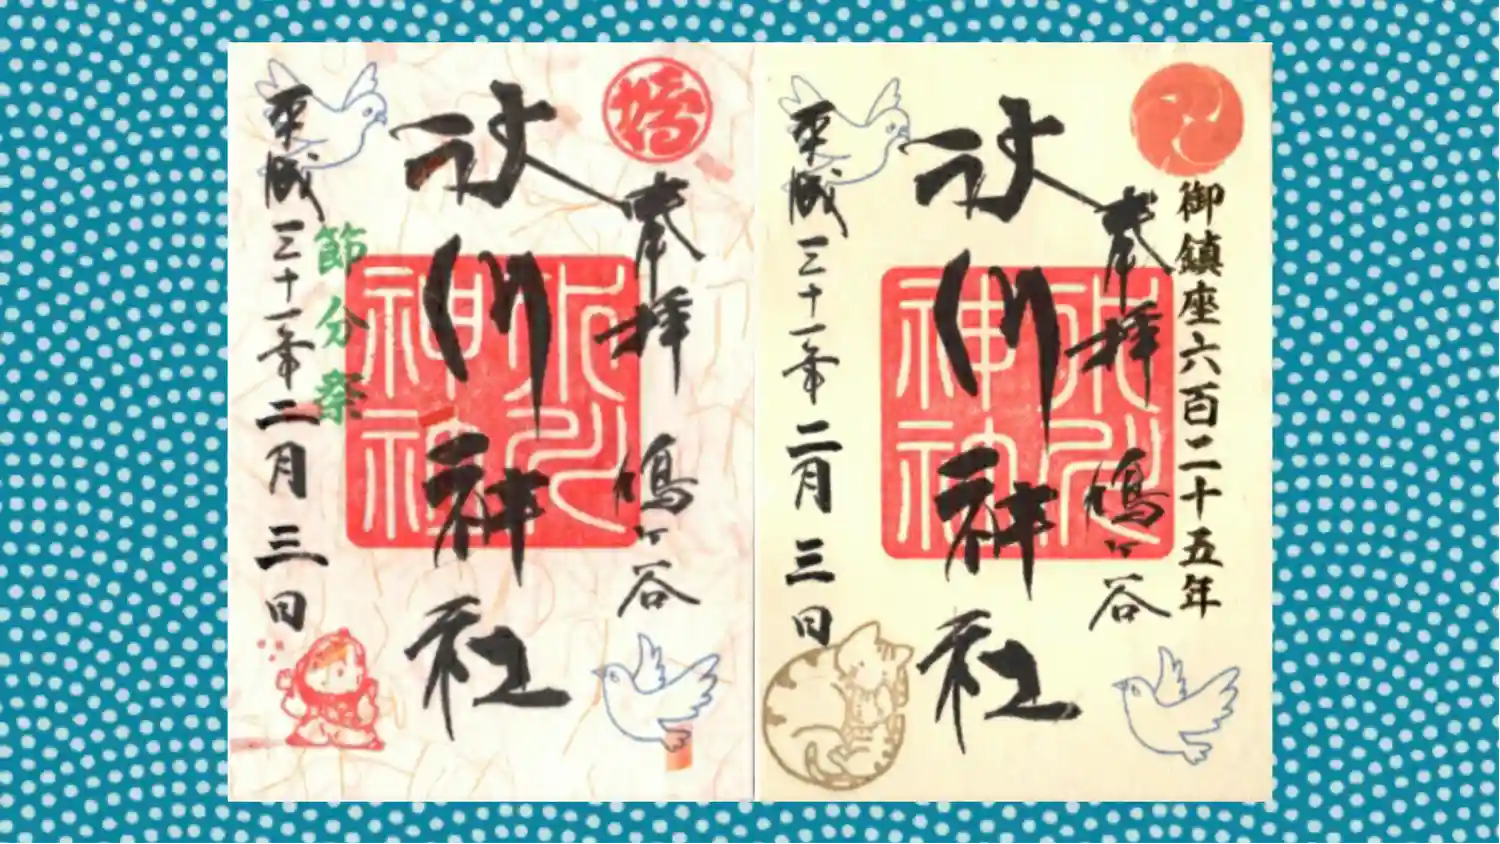 奉拝　鳩ヶ谷
氷川神社
氷川神社
節分祭
平成三十一年二月三日
御鎮座六百二十五年
奉拝　鳩ヶ谷
氷川神社
氷川神社
平成三十一年二月三日